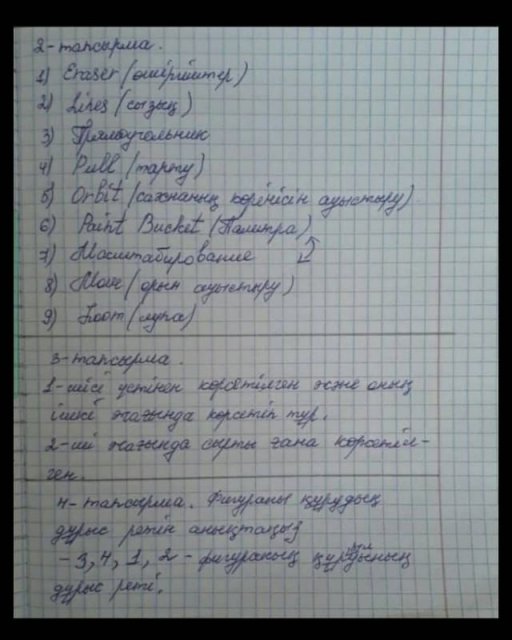 2-тапсырма.
1) Eraser (өшіргіштер)
2) Lines (сызық)
3) Прямоугольник
4) Pull (тарту)
5) Orbit (сахнаның көрінісін ауыстыру).
6) Paint Bucket (Палитра)
7) Масштабирование
8) Move (орын ауыстыру)
9) Zoom (лупа)
3-тапсырма.
1-шісі үстінен көрсетілген және оның
ішкі жағында көрсетіп тұр.
2-ші жағында сырты ғана көрсетіл-
ген.
4-тапсырма. Фигураны құрудың
дұрыс ретін анықтаңыз
-3,4,1,2 - фигураның құрылуының
дұрыс реті.